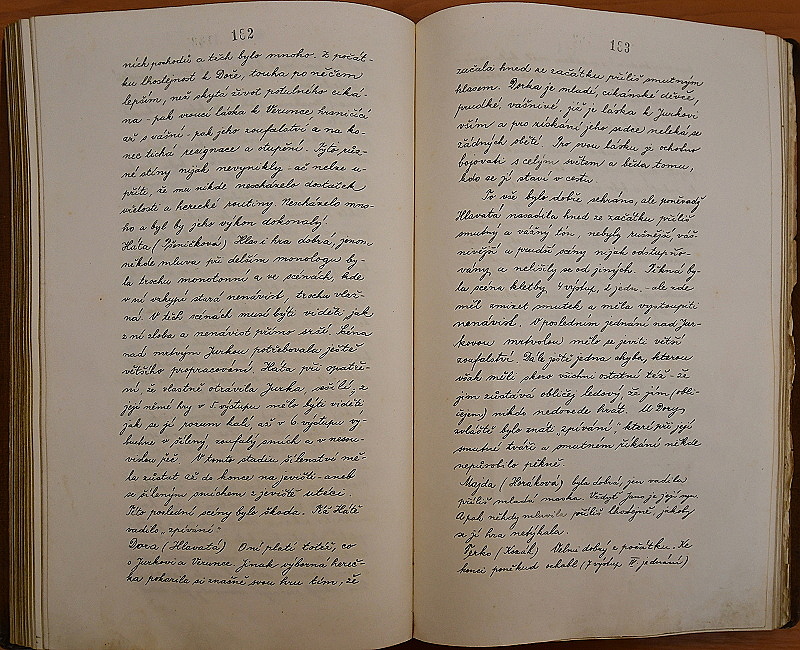 182
ních pochodů a těch bylo mnoho. Z počát-
ku lhostejnost k Doře, touha po něčem
lepším, než skýtá život potulného ciká-
na - pak vroucí láska k Verunce hraničící
až s vášní - pak jeho zoufalství a na ko-
nec tichá resignace a otupění. Tyto růz-
né stíny nijak nevynikly - ač nelze u-
příti, že mu nikde nescházelo dostatek
vřelosti a herecké routiny. Nescházelo mno-
ho a byl by jeho výkon dokonalý
Háta (Pšeničková) Hlas i hra dobrá, jenom
někde mluva při delším monologu by-
la trochu monotonní a ve scénách, kde
v ní vzkypí stará nenávist, trochu vlaž-
ná. V těch scénách musí býti viděti jak
z ní zloba a nenávist přímo srší. Scéna
nad mrtvým Jurkou potřebovala ještě
většího propracování. Háta při spatře-
ní, že vlastně otrávila Jurka, sešílí, z
její němé hry v 5. výstupu mělo býti viděti,
jak se jí rozum kalí, až v 6 výstupu vy-
buchne v šílený zoufalý smích a v nesou-
vislou řeč. V tomto stadiu šílenství mě-
la zůstat až do konce na jevišti - aneb
se šíleným smíchem z jeviště utéci.
Této poslední scény bylo škoda. Též Hátě
vadilo „zpívání“
Dora (Hlavatá) Oní platí totéž, co
o Jurkovi a Verunce. Jinak výborná hereč-
ka pokazila si značně svou hru tím, že
183
začala hned ze začátku příliš smutným
hlasem. Dorka je mladé, cikánské děvče,
prudké, vášnivé, jíž je láska k Jurkovi
vším a pro získání jeho srdce neleká se
žádných obětí. Pro svou lásku je ochotna
bojovati s celým světem a běda tomu,
kdo se jí staví v cestu.
To vše bylo dobře sehráno, ale poněvadž
Hlavatá nasadila hned ze začátku příliš
smutný a vážný tón, nebyly rušnější, váš-
nivější a prudší scény nijak odstupňo-
vány, a nelišily se od jiných. Pěkná by-
la scéna kletby 4 výstup, 2 jedn. - ale zde
měl zmizet smutek a měla vystoupiti
nenávist. V posledním jednání nad Jur-
kovou mrtvolou mělo se jeviti větší
zoufalství. Dále ještě jedna chyba, kterou
však měli skoro všichni ostatní též - že
jim zůstává obličej ledový, že jím (obli-
čejem) nikdo nedovede hrát. U Dory
zvláště bylo znát „zpívání“ - které při její
smutné tváři a smutném říkání někde
nepůsobilo pěkně.
Majda (Horáková) byla dobrá, jen vadila
příliš mladá maska. Vždyť Jura je její syn.
A pak někdy mluvila příliš lhostejně jakoby
se jí hra netýkala.
Peřko (Kozák) Velmi dobrý z počátku. Ke
konci poněkud ochabl (7 výstup II. jednání)